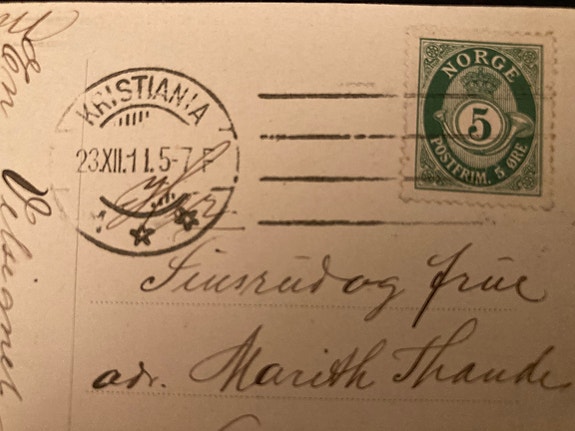 KRISTIANIA
23.XII.11.5-7 F
NORGE
5
POSTFRIM. 5 ØRE
Sinsrud og frue
adr. Marith Thande
Velsignet